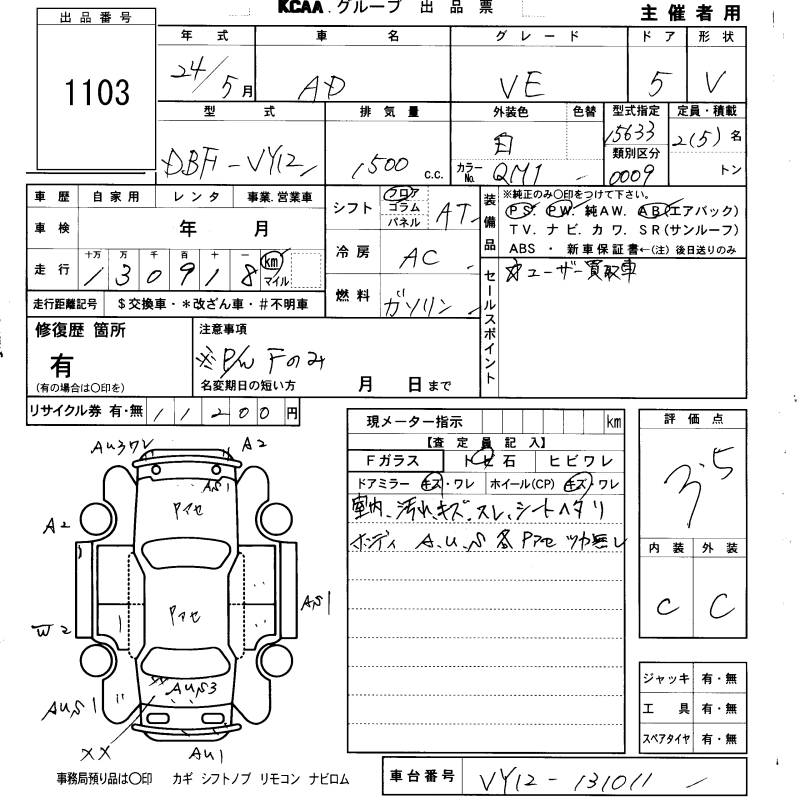 KCAA.グループ 出品票
主催者用
出品番号
1103
年式 車名 グレード ドア 形状
24/5月 AD VE 5 V
型式 排気量 外装色 色替 型式指定 定員・積載
DBF-VY12 1500 c.c. 白 15633 2(5)名
カラーNo. QM1 類別区分 0009 トン
車歴 自家用 レンタ 事業.営業車
車検 年 月
走行 十万 万 千 百 十 一
130918 km マイル
走行距離記号 $交換車・*改ざん車・#不明車
シフト フロア コラム パネル AT
冷房 AC
燃料 ガソリン
装備品 ※純正のみ〇印をつけて下さい。
PS. PW. 純AW. AB(エアバック)
TV. ナビ. カワ. SR(サンルーフ)
ABS・新車保証書←(注)後日送りのみ
セールスポイント
ユーザー買取車
修復歴 箇所
有
(有の場合は〇印を)
注意事項
※P/W Fのみ
名変期日の短い方 月 日まで
リサイクル券 有・無 11200円
現メーター指示 km
【査定員記入】
Fガラス トビ石 ヒビワレ
ドアミラー キズ・ワレ ホイール(CP) キズ・ワレ
室内、汚れ、キズ、スレ、シートヘタリ
ボディ A.U.S 各 Pアセ ツヤ無し
評価点
3.5
内装 外装
C C
AU3ワレ A2
AS1
Pアセ
A2
Pアセ
AS1
W2
AUS3
AUS1
XX AU1
ジャッキ 有・無
工具 有・無
スペアタイヤ 有・無
事務局預り品は〇印 カギ シフトノブ リモコン ナビロム
車台番号 VY12-131011